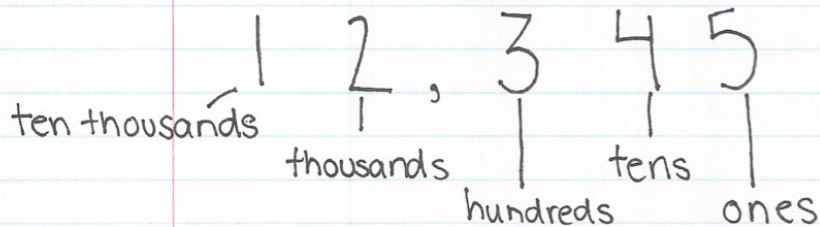 1 2, 3 4 5
ten thousands
thousands
tens
hundreds
ones